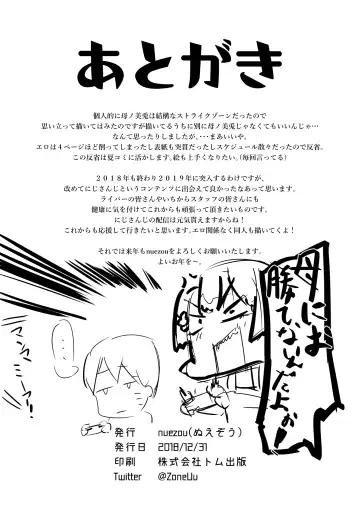 あとがき
個人的に母ノ美兎は結構なストライクゾーンだったので
思い立って描いてはみたのですが描いてるうちに別に母ノ美兎じゃなくてもいいんじゃ…
なんて思ったりしましたが、…まあいいや。
エロは4ページほど削ってしまったし表紙も突貫だったしスケジュール散々だったので反省。
この反省は夏コミに活かします。絵も上手くなりたい。（毎回言ってる）
2018年も終わり2019年に突入するわけですが、
改めてにじさんじというコンテンツに出会えて良かったなあって思います。
ライバーの皆さんやいちからスタッフの皆さんにも
健康に気を付けてこれからも頑張って頂きたいものです。
にじさんじの配信は元気貰えますからね！
これからも応援して行きたいと思います。エロ関係なく同人も描いてくよ！
それでは来年もnuezouをよろしくお願いいたします。
よいお年を～。
母には
勝てないんだよお!
…
発行 nuezou(ぬえぞう)
発行日 2018/12/31
印刷 株式会社トム出版
Twitter @ZoneUu